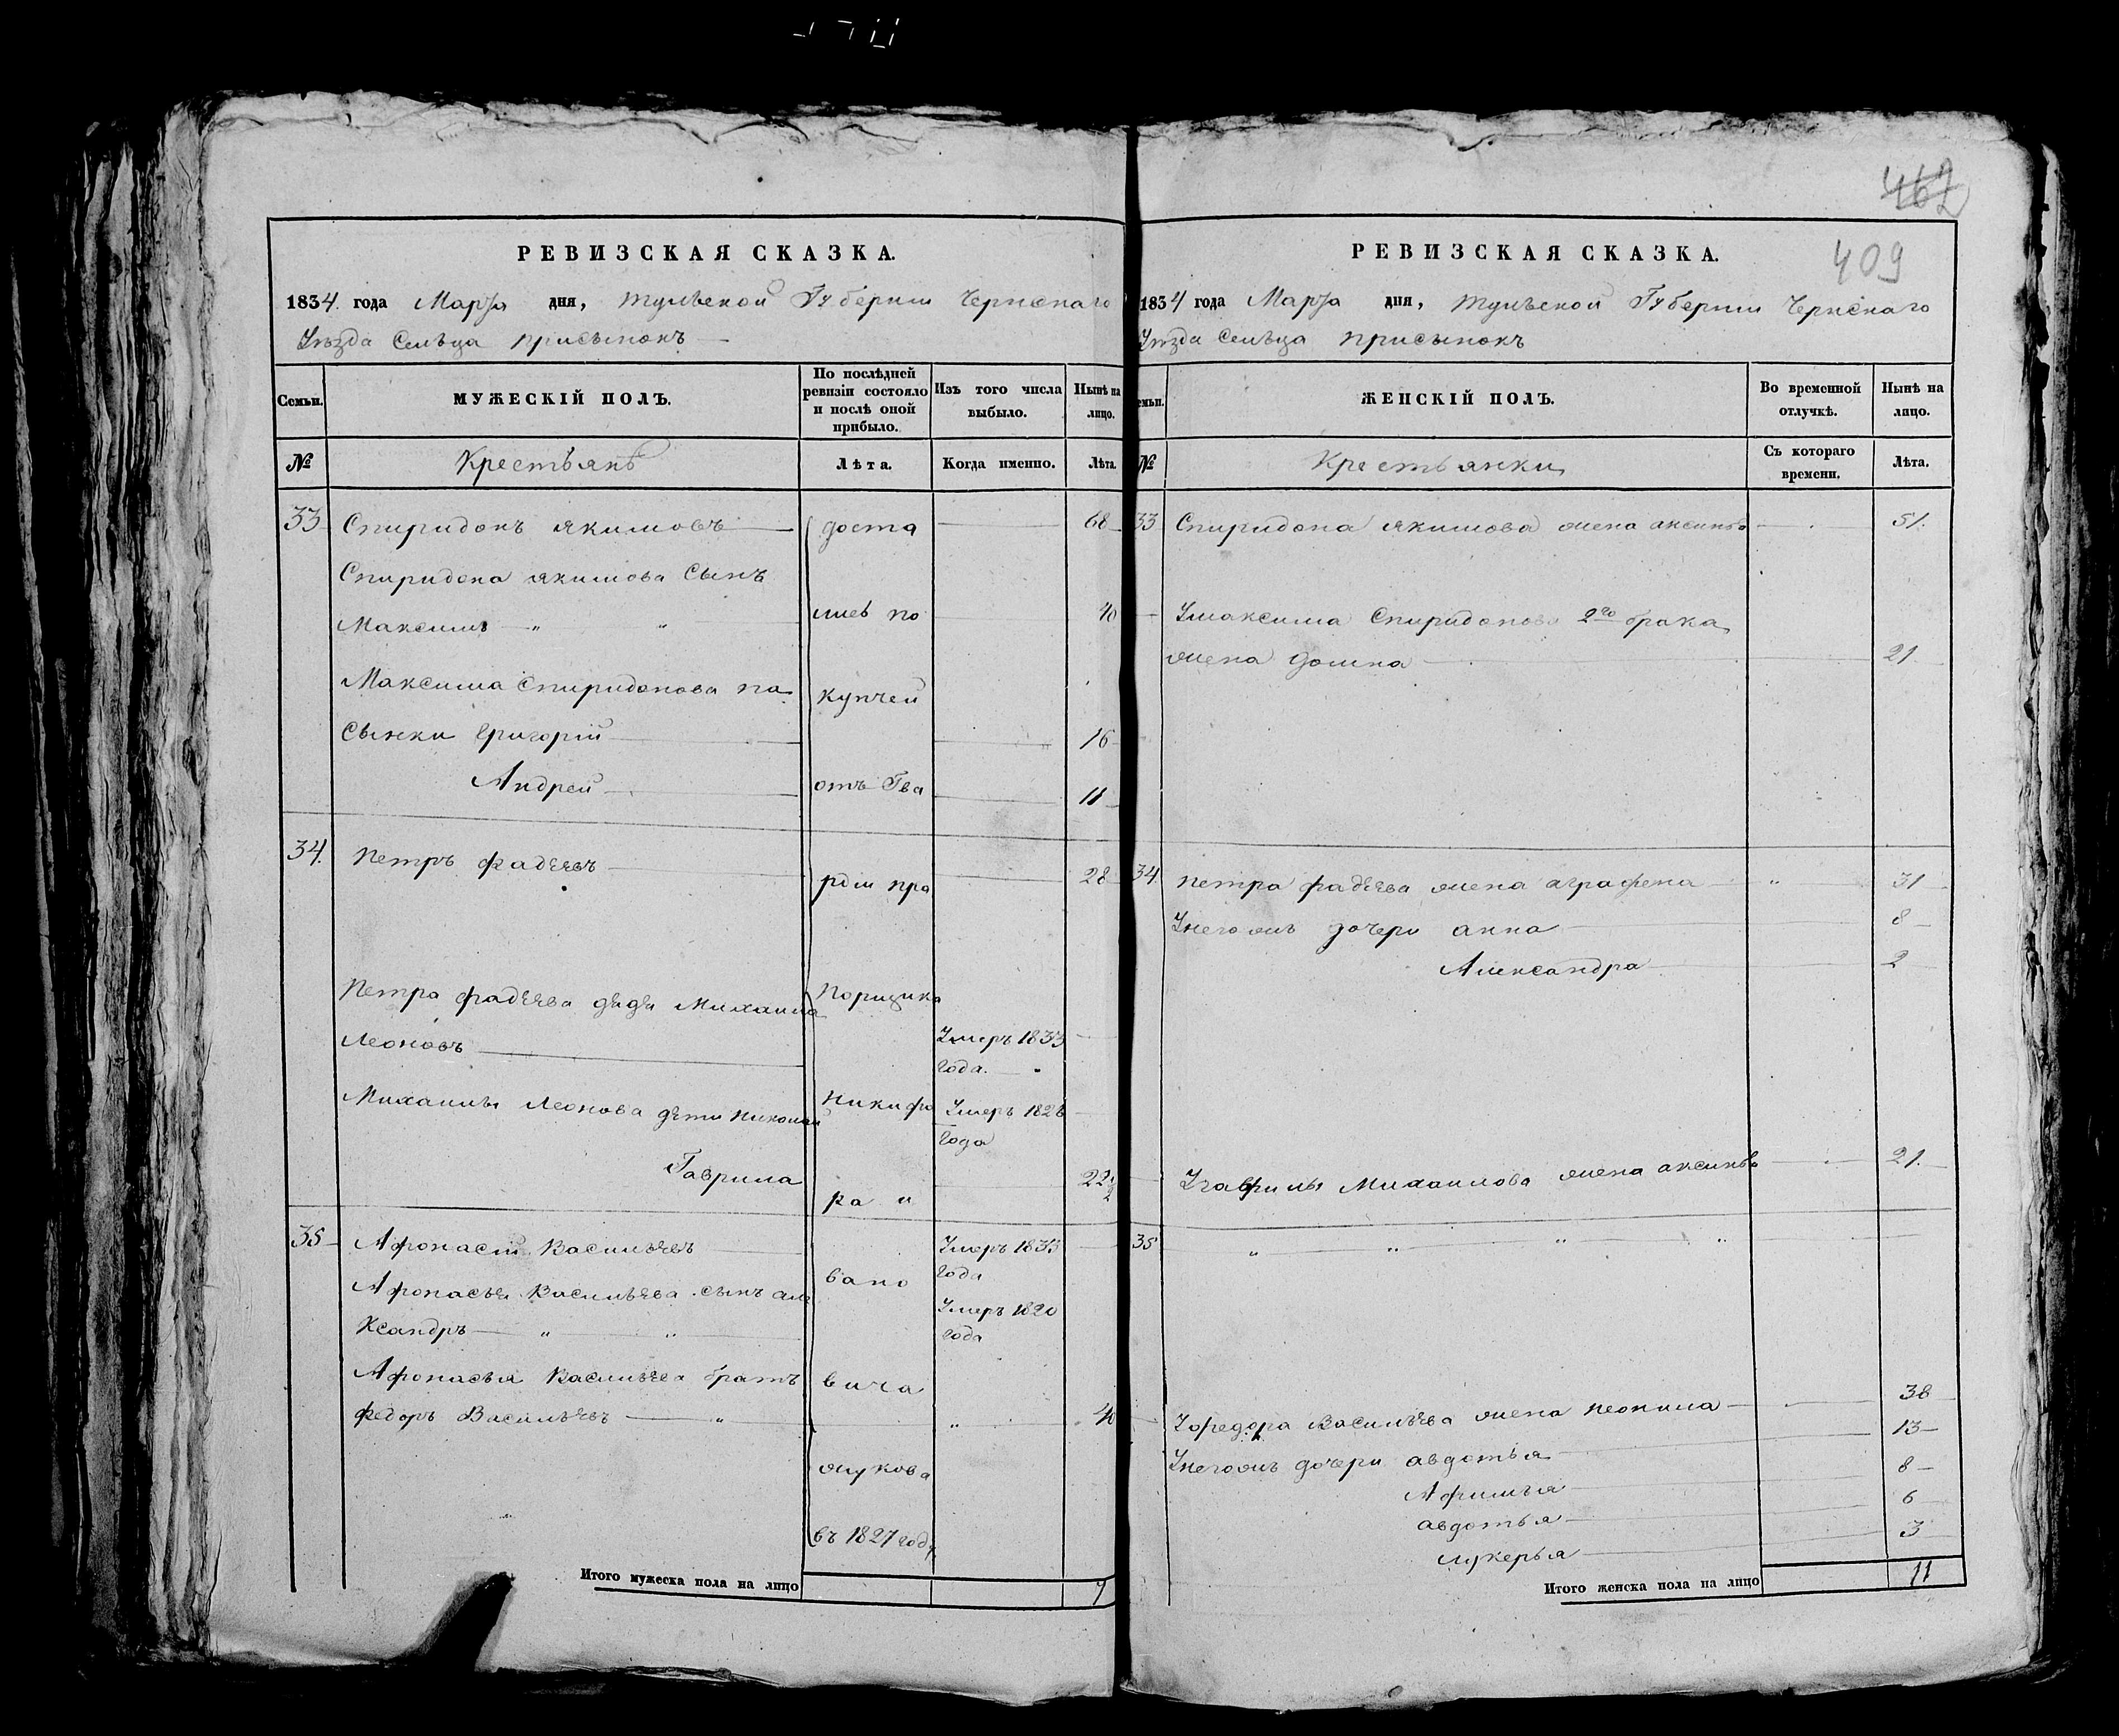 462
409
РЕВИЗСКАЯ СКАЗКА.
1834 года Марта дня, Тульской Губернии Чернскаго
Уѣзда Сельца присынокъ
Семьи.
МУЖЕСКІЙ ПОЛЪ.
По послѣдней ревизіи состояло и послѣ оной прибыло.
Изъ того числа выбыло.
Нынѣ на лицо.
№
Крестьянъ
Лѣта.
Когда именно.
Лѣта.
33 Спиридонъ якимовъ доста 68
Спиридона якимова Сынъ
Максимъ " " лись по 40
Максима Спиридонова па
купчей
сынки Григорій 16
Андрей отъ Гва 11
34. петръ фадѣевъ рдіи пра 28
Петра фадѣева дядя Михаила порщика
Леоновъ Умеръ 1833
года.
Михаилы Леонова дѣти николай Никифо Умеръ
года
Гаврила ра и 22½
35 Афонасій Васильевъ Умеръ 1833
года
Афонасья Васильева сынъ але вано
Умеръ 1820
ксандръ " " года
Афонасья Васильева братъ вича
федоръ Васильевъ " " 40
жукова
въ 1827 году
Итого мужеска пола на лицо 7
РЕВИЗСКАЯ СКАЗКА.
1834 года Марта дня, Тульской Губернии Чернскаго
Уѣзда Сельца присынокъ
Семьи.
ЖЕНСКІЙ ПОЛЪ.
Во временной отлучкѣ.
Нынѣ на лицо.
№
Крестьянки
Съ котораго времени.
Лѣта.
33 Спиридона якимова жена аксинья 51.
Умаксима Спиридонова 2го брака
жена домна 21
34 петра фадѣева жена аграфена " 31
Унегожъ дочери анна 8
Александра 2
Угаврилы Михаилова жена аксинья 21.
35 " " " "
Уфедора Васильева жена неонила 38
Унегожъ дочери авдотья 13
Афимья 8
авдотья 6
лукерья 3
Итого женска пола на лицо 11